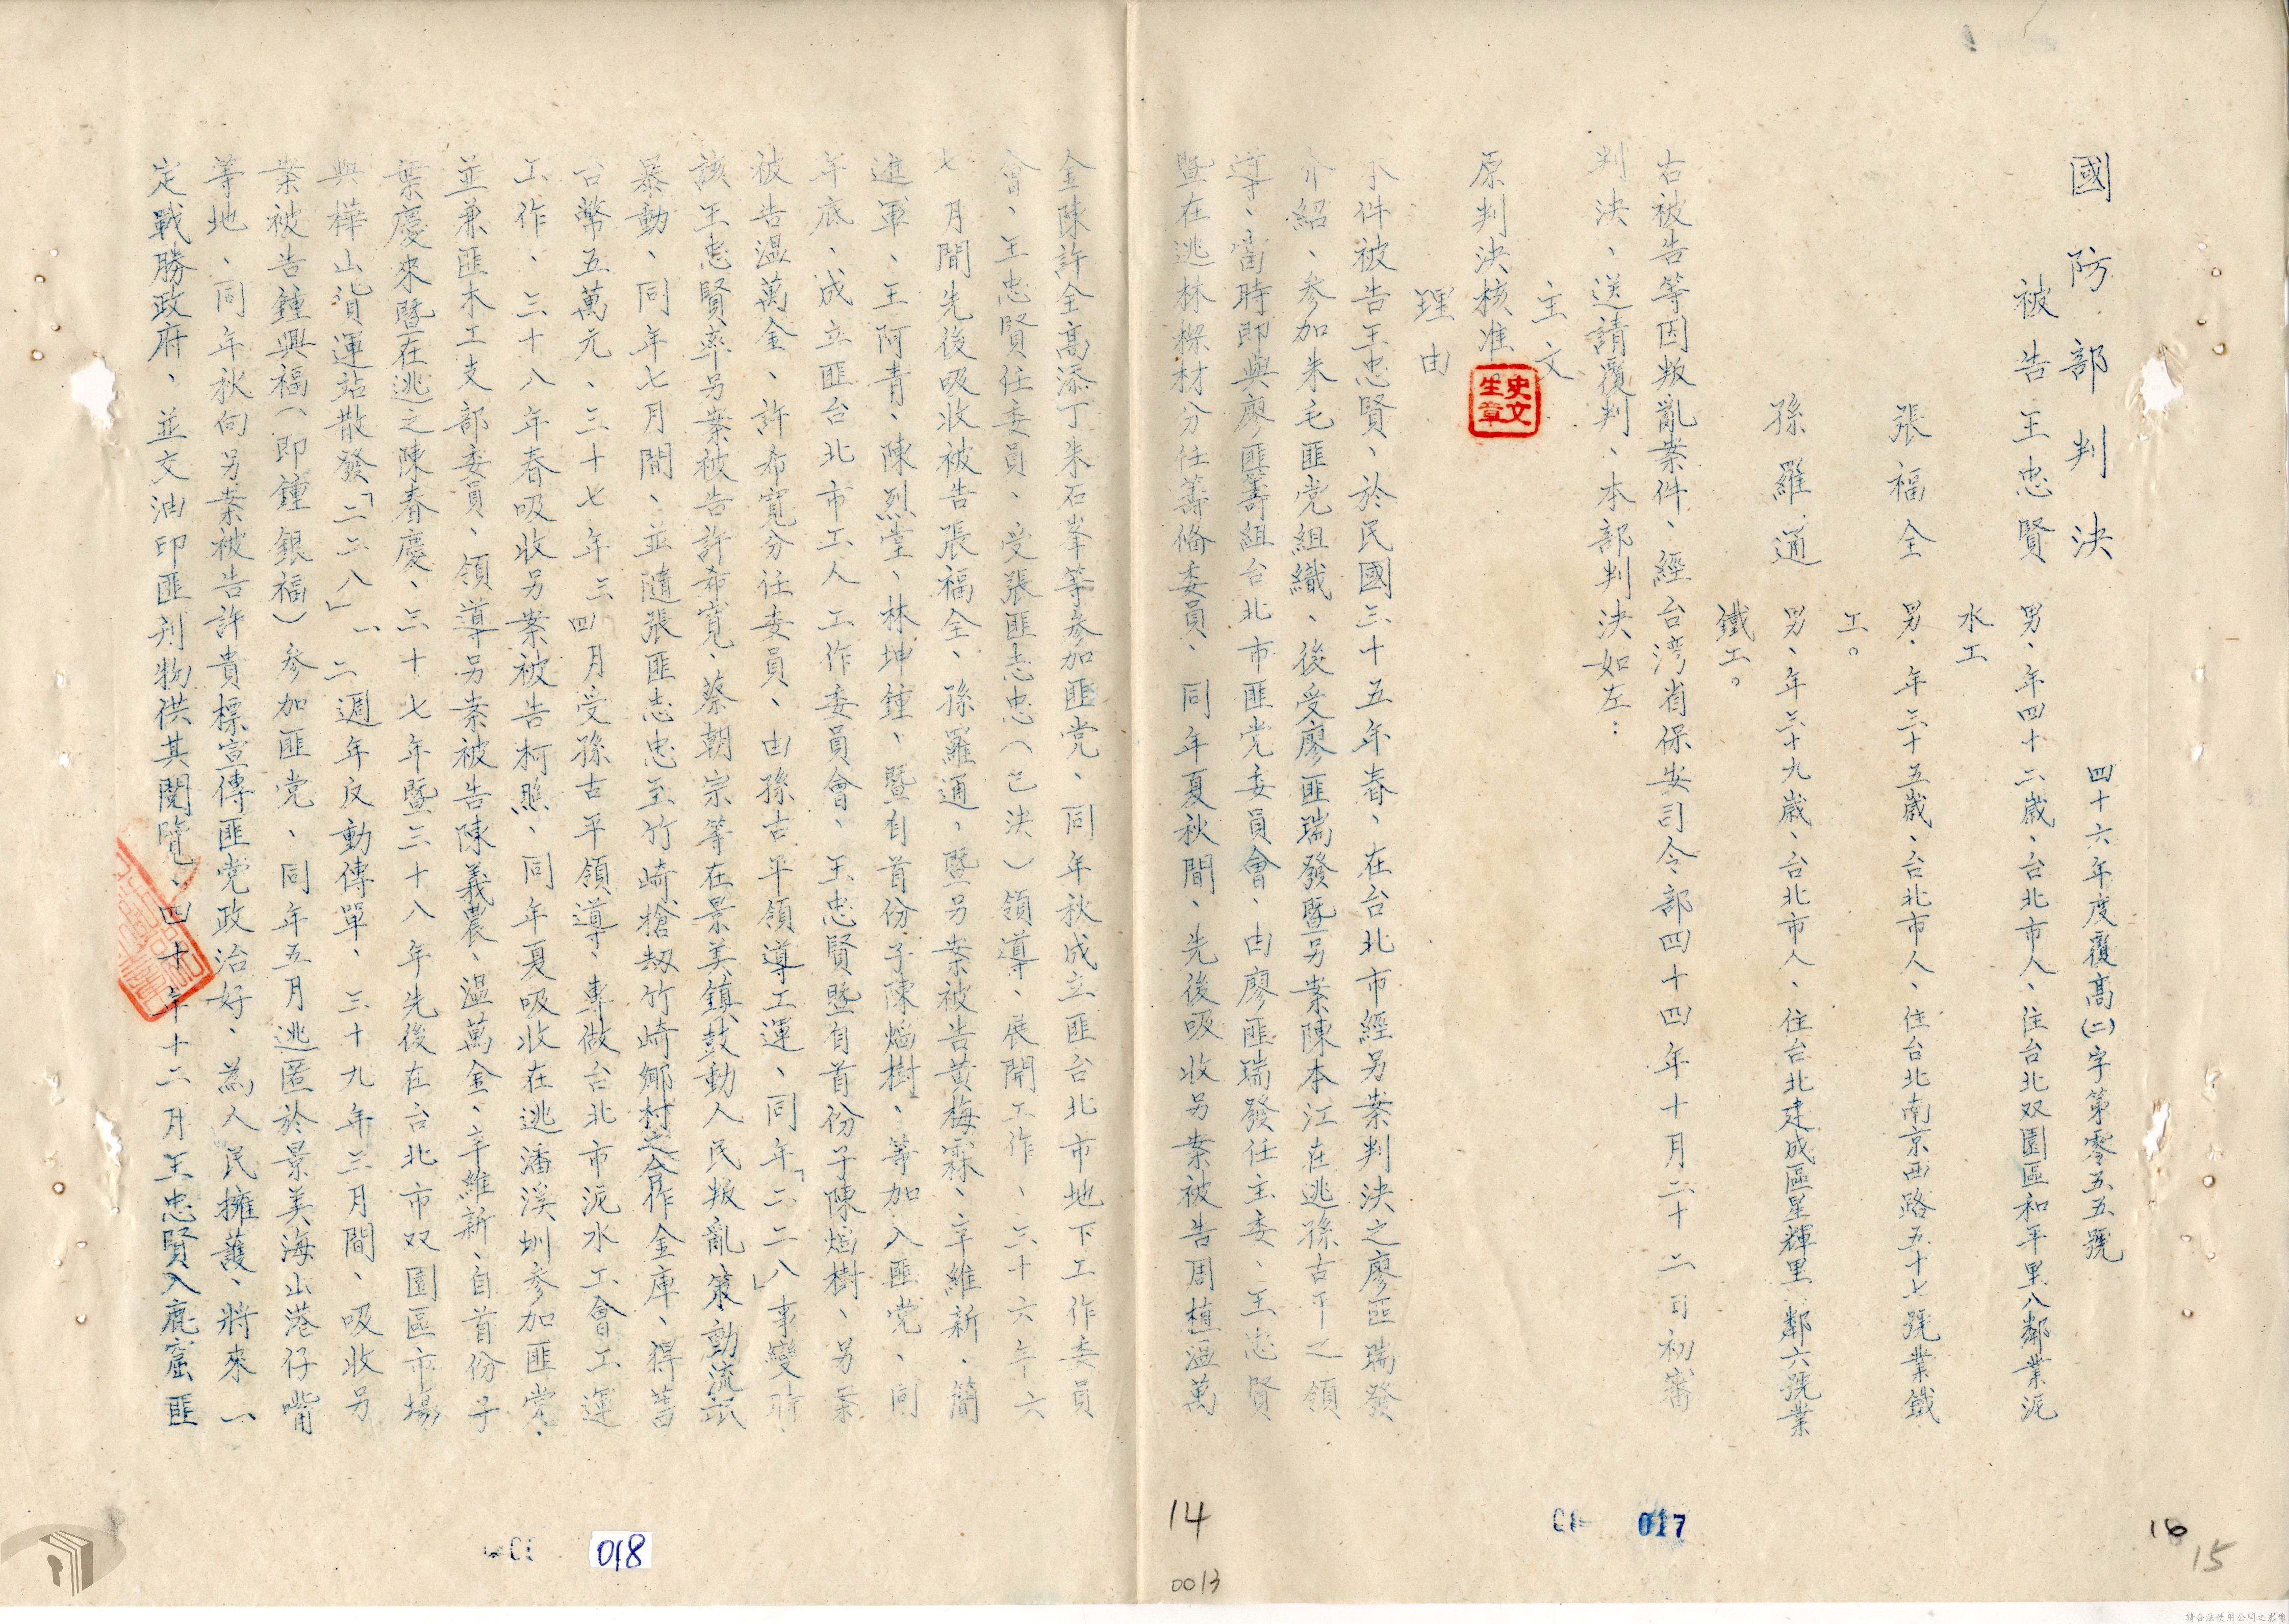 國防部判決
四十六年度覆高(二)字第零五五號
被告王忠賢 男、年四十二歲、台北市人、住台北双園區和平里八鄰業泥
水工
張福全 男、年三十五歲、台北市人、住台北南京西路五十七號業鐵
工。
孫羅通 男、年三十九歲、台北市人、住台北建成區星輝里 鄰六號業
鐵工。
右被告等因叛亂案件、經台湾省保安司令部四十四年十月二十二日初審
判決、送請覆判、本部判決如左：
主文
原判決核准。
史文生章
理由
本件被告王忠賢、於民國三十五年春、在台北市經另案判決之廖匪瑞發
介紹、參加朱毛匪党組織、後受廖匪瑞發暨另案陳本江在逃孫古平之領
導、當時即與廖匪籌組台北市匪党委員會、由廖匪瑞發任主委、王忠賢
暨在逃林樑材分任籌俻委員、同年夏秋間、先後吸收另案被告周植温萬
金陳許全高添丁朱石峯等參加匪党、同年秋成立匪台北市地下工作委員
會、王忠賢任委員、受張匪志忠（已決）領導、展開工作、三十六年六
七月間先後吸收被告張福全、孫羅通、暨另案被告黃梅霖、辛維新、簡
進軍、王阿青、陳烈堂、林坤鍾、暨自首份子陳熖樹、等加入匪党、同
年底、成立匪台北市工人工作委員會、王忠賢暨自首份子陳熖樹、另案
被告温萬金、許希寬分任委員、由孫古平領導工運、同年「二二八」事變時、
該王忠賢率另案被告許希寬、蔡朝宗等在景美鎮鼓動人民叛亂策動流氓
暴動、同年七月間、並隨張匪志忠至竹崎搶刼竹崎鄉村之合作金庫、得舊
台幣五萬元、三十七年三四月受孫古平領導、專做台北市泥水工會工運
工作、三十八年春吸收另案被告柯照、同年夏吸收在逃潘溪圳參加匪党、
並兼匪木工支部委員、領導另案被告陳義農、温萬金、辛維新、自首份子
葉慶來暨在逃之陳春慶、三十七年暨三十八年先後在台北市双園區市場
與樺山貨運站散發「二二八」一、二週年反動傳單、三十九年三月間、吸收另
案被告鍾興福（即鍾銀福）參加匪党、同年五月逃匿於景美海山港仔嘴
等地、同年秋向另案被告許貴標宣傳匪党政治好、為人民擁護、將來一
定戰勝政府、並交油印匪刋物供其閱覽、四十年十二月王忠賢入鹿窟匪
14
0013
017
018
16
15
請合法使用公開之影像